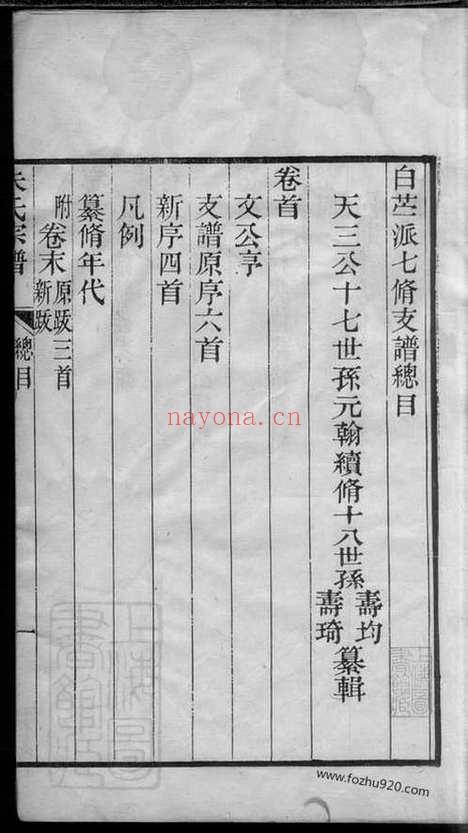 白茫派七脩支譜總目
天三公十七世孫元翰續脩十八世孫壽均壽琦纂輯
卷首
文公序
支譜原序六首
新序四首
凡例
纂脩年代
附卷末原跋三首新跋
朱氏宗譜 總目 一
nayona.cn
上海圖書館藏
上海圖書館藏
www.fozhu920.com